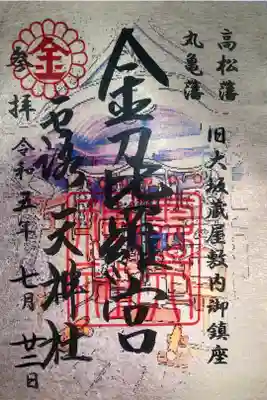 高松藩
丸亀藩
旧大坂蔵屋敷内御鎮座
金刀比羅宮
金
参拝
露 天神社
令和五年 七月 廿二日